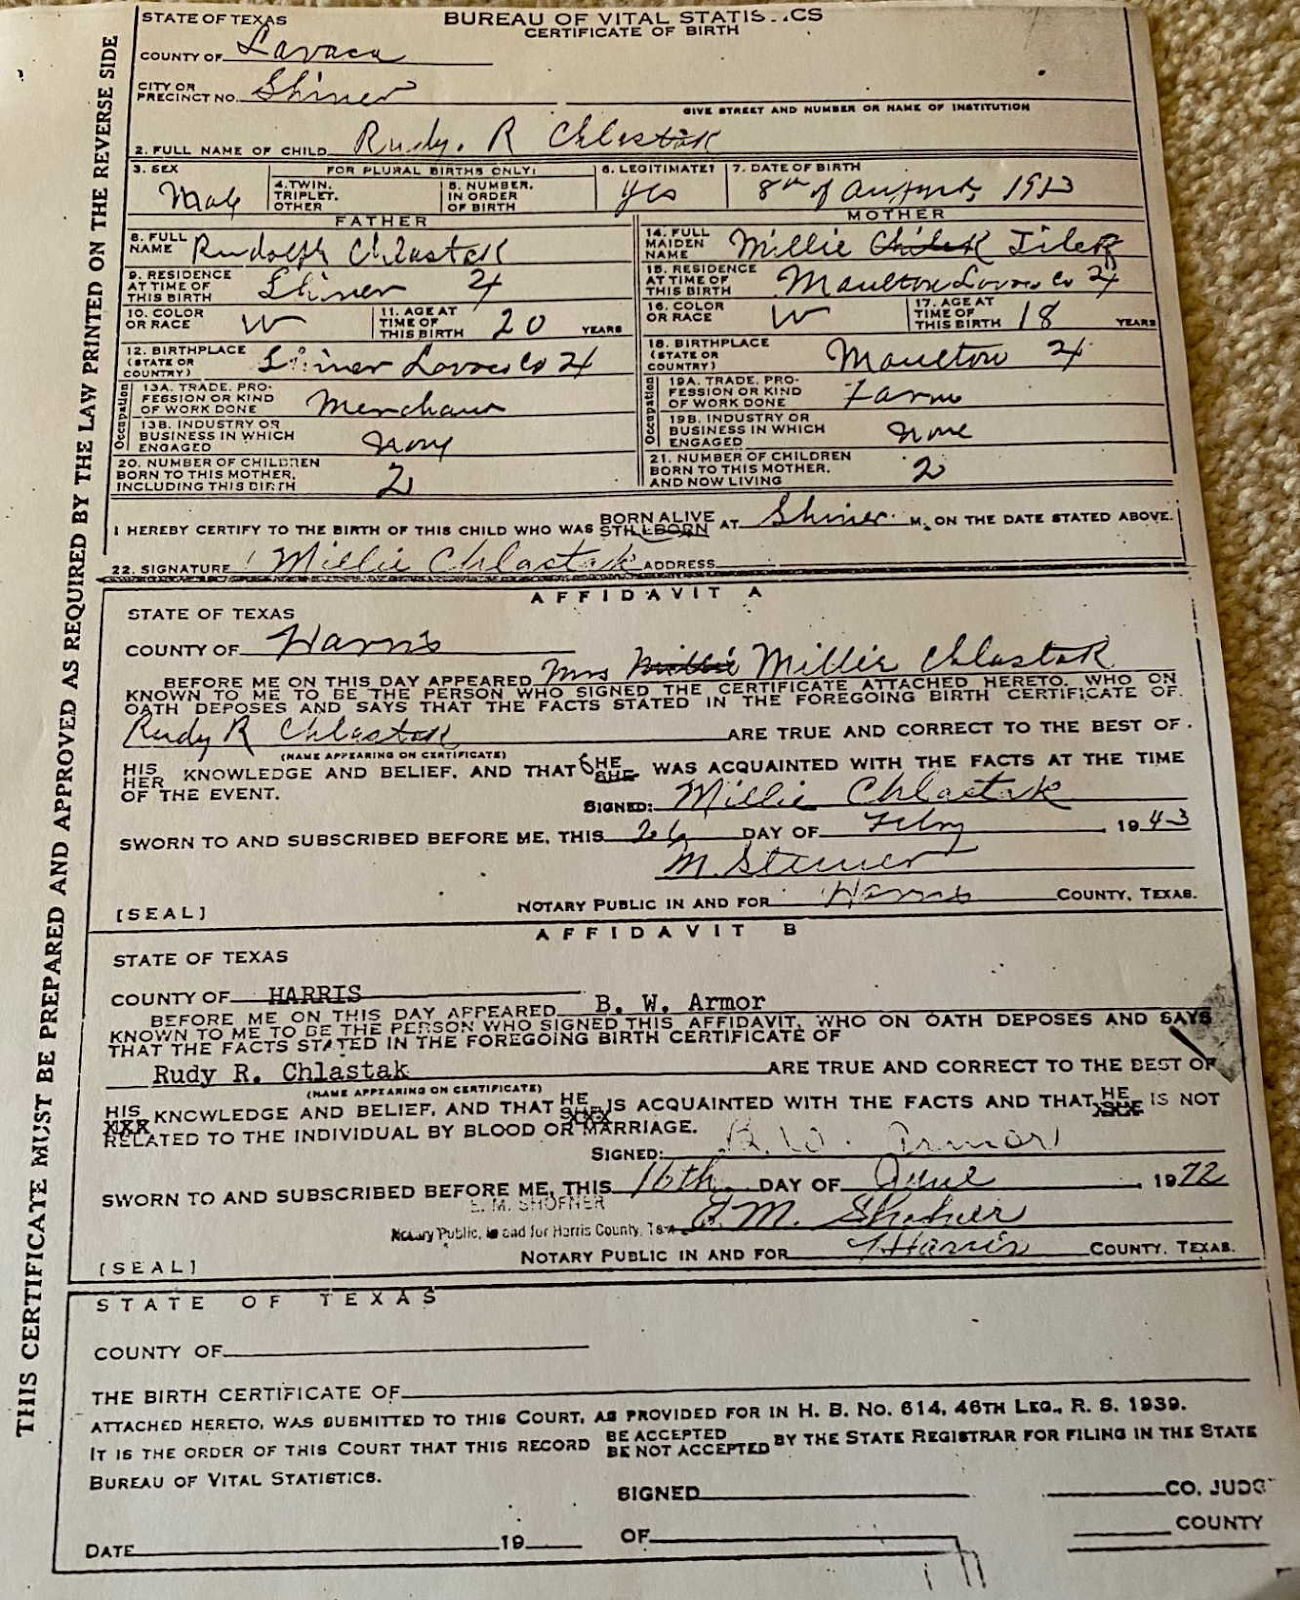 THIS CERTIFICATE MUST BE PREPARED AND APPROVED AS REQUIRED BY THE LAW PRINTED ON THE REVERSE SIDE
STATE OF TEXAS BUREAU OF VITAL STATIS..CS
CERTIFICATE OF BIRTH
COUNTY OF Lavaca
CITY OR PRECINCT NO. Shiner
GIVE STREET AND NUMBER OR NAME OF INSTITUTION
2. FULL NAME OF CHILD Rudy. R Chlastak
3. SEX Male FOR PLURAL BIRTHS ONLY: 4. TWIN, TRIPLET, OTHER 5. NUMBER, IN ORDER OF BIRTH 6. LEGITIMATE? yes 7. DATE OF BIRTH 8th of August, 1913
FATHER MOTHER
8. FULL NAME Rudolph Chlastak 14. FULL MAIDEN NAME Millie
9. RESIDENCE AT TIME OF THIS BIRTH Shiner 15. RESIDENCE AT TIME OF THIS BIRTH Moulton Lavaca Co
10. COLOR OR RACE W 11. AGE AT TIME OF THIS BIRTH 20 YEARS 16. COLOR OR RACE W 17. AGE AT TIME OF THIS BIRTH 18 YEARS
12. BIRTHPLACE (STATE OR COUNTRY) Shiner Lavaca Co 18. BIRTHPLACE (STATE OR COUNTRY) Moulton
Occupation 13A. TRADE, PROFESSION OR KIND OF WORK DONE Merchant Occupation 19A. TRADE, PROFESSION OR KIND OF WORK DONE Farm
13B. INDUSTRY OR BUSINESS IN WHICH ENGAGED none 19B. INDUSTRY OR BUSINESS IN WHICH ENGAGED none
20. NUMBER OF CHILDREN BORN TO THIS MOTHER, INCLUDING THIS BIRTH 2 21. NUMBER OF CHILDREN BORN TO THIS MOTHER, AND NOW LIVING 2
I HEREBY CERTIFY TO THE BIRTH OF THIS CHILD WHO WAS BORN ALIVE STILLBORN AT Shiner M. ON THE DATE STATED ABOVE.
22. SIGNATURE Millie Chlastak ADDRESS
AFFIDAVIT A
STATE OF TEXAS
COUNTY OF Harris
BEFORE ME ON THIS DAY APPEARED Mrs Millie Millie Chlastak
KNOWN TO ME TO BE THE PERSON WHO SIGNED THE CERTIFICATE ATTACHED HERETO, WHO ON
OATH DEPOSES AND SAYS THAT THE FACTS STATED IN THE FOREGOING BIRTH CERTIFICATE OF
Rudy R Chlastak ARE TRUE AND CORRECT TO THE BEST OF
(NAME APPEARING ON CERTIFICATE)
HIS HER KNOWLEDGE AND BELIEF, AND THAT HE SHE WAS ACQUAINTED WITH THE FACTS AT THE TIME
OF THE EVENT.
SIGNED: Millie Chlastak
SWORN TO AND SUBSCRIBED BEFORE ME, THIS 26 DAY OF Febry 1943
M. Steiner
[SEAL] NOTARY PUBLIC IN AND FOR Harris COUNTY, TEXAS.
AFFIDAVIT B
STATE OF TEXAS
COUNTY OF HARRIS
BEFORE ME ON THIS DAY APPEARED B. W. Armor
KNOWN TO ME TO BE THE PERSON WHO SIGNED THIS AFFIDAVIT, WHO ON OATH DEPOSES AND SAYS
THAT THE FACTS STATED IN THE FOREGOING BIRTH CERTIFICATE OF
Rudy R. Chlastak ARE TRUE AND CORRECT TO THE BEST OF
(NAME APPEARING ON CERTIFICATE)
HIS XXX KNOWLEDGE AND BELIEF, AND THAT HE SHE IS ACQUAINTED WITH THE FACTS AND THAT HE SHE IS NOT
RELATED TO THE INDIVIDUAL BY BLOOD OR MARRIAGE.
SIGNED: B. W. Armor
SWORN TO AND SUBSCRIBED BEFORE ME, THIS 16th DAY OF June 1972
E. M. SHOFNER
Notary Public, in and for Harris County, Texas E. M. Shofner
[SEAL] NOTARY PUBLIC IN AND FOR Harris COUNTY, TEXAS.
STATE OF TEXAS
COUNTY OF
THE BIRTH CERTIFICATE OF
ATTACHED HERETO, WAS SUBMITTED TO THIS COURT, AS PROVIDED FOR IN H. B. NO. 614, 46TH LEG., R. S. 1939.
IT IS THE ORDER OF THIS COURT THAT THIS RECORD BE ACCEPTED BE NOT ACCEPTED BY THE STATE REGISTRAR FOR FILING IN THE STATE
BUREAU OF VITAL STATISTICS.
SIGNED CO. JUDG
DATE 19 OF COUNTY